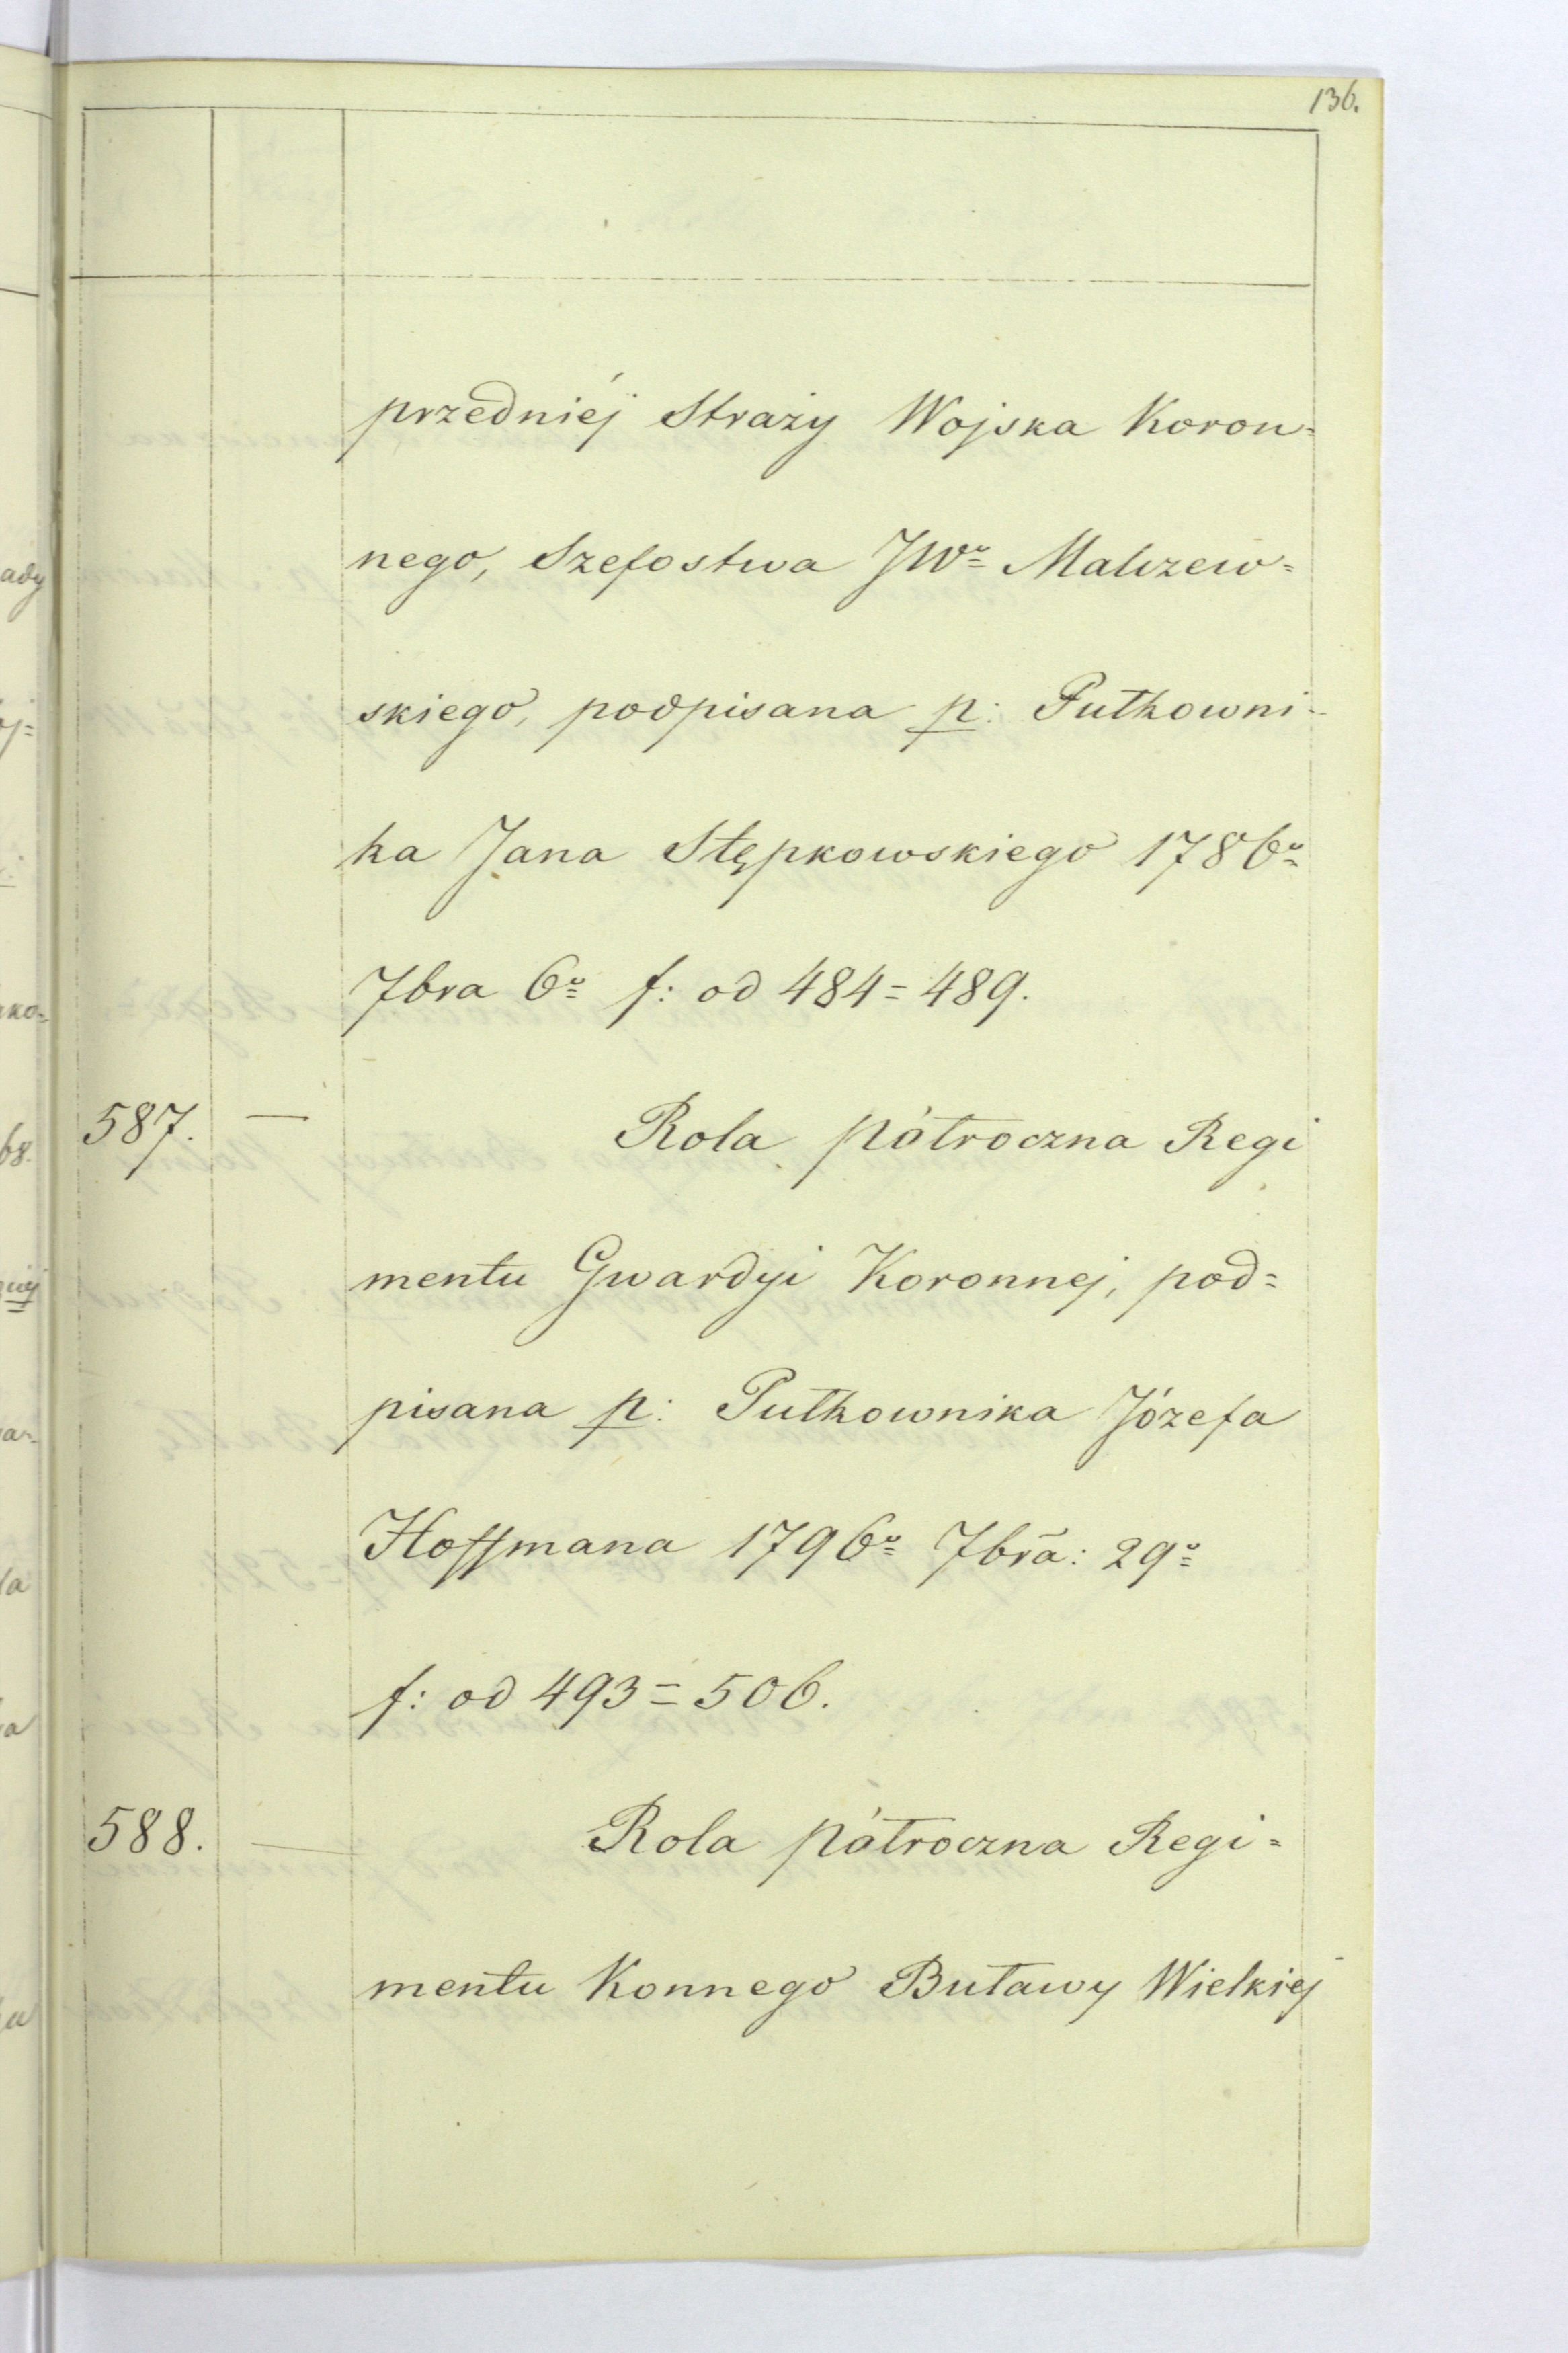 136.
przedniéj Straży Wojska Koron=
nego, Szefostwa JWº Malczew=
skiego, podpisana p: Pułkowni-
ka Jana Stępkowskiego 1786º
7bra 6º f: od 484=489.
587. — Rola półroczna Regi
mentu Gwardyi Koronnej, pod=
pisana p: Pułkownika Józefa
Hoffmana 1796º 7bra: 29º
f: od 493=506.
588. — Rola półroczna Regi=
mentu Konnego Buławy Wielkiej